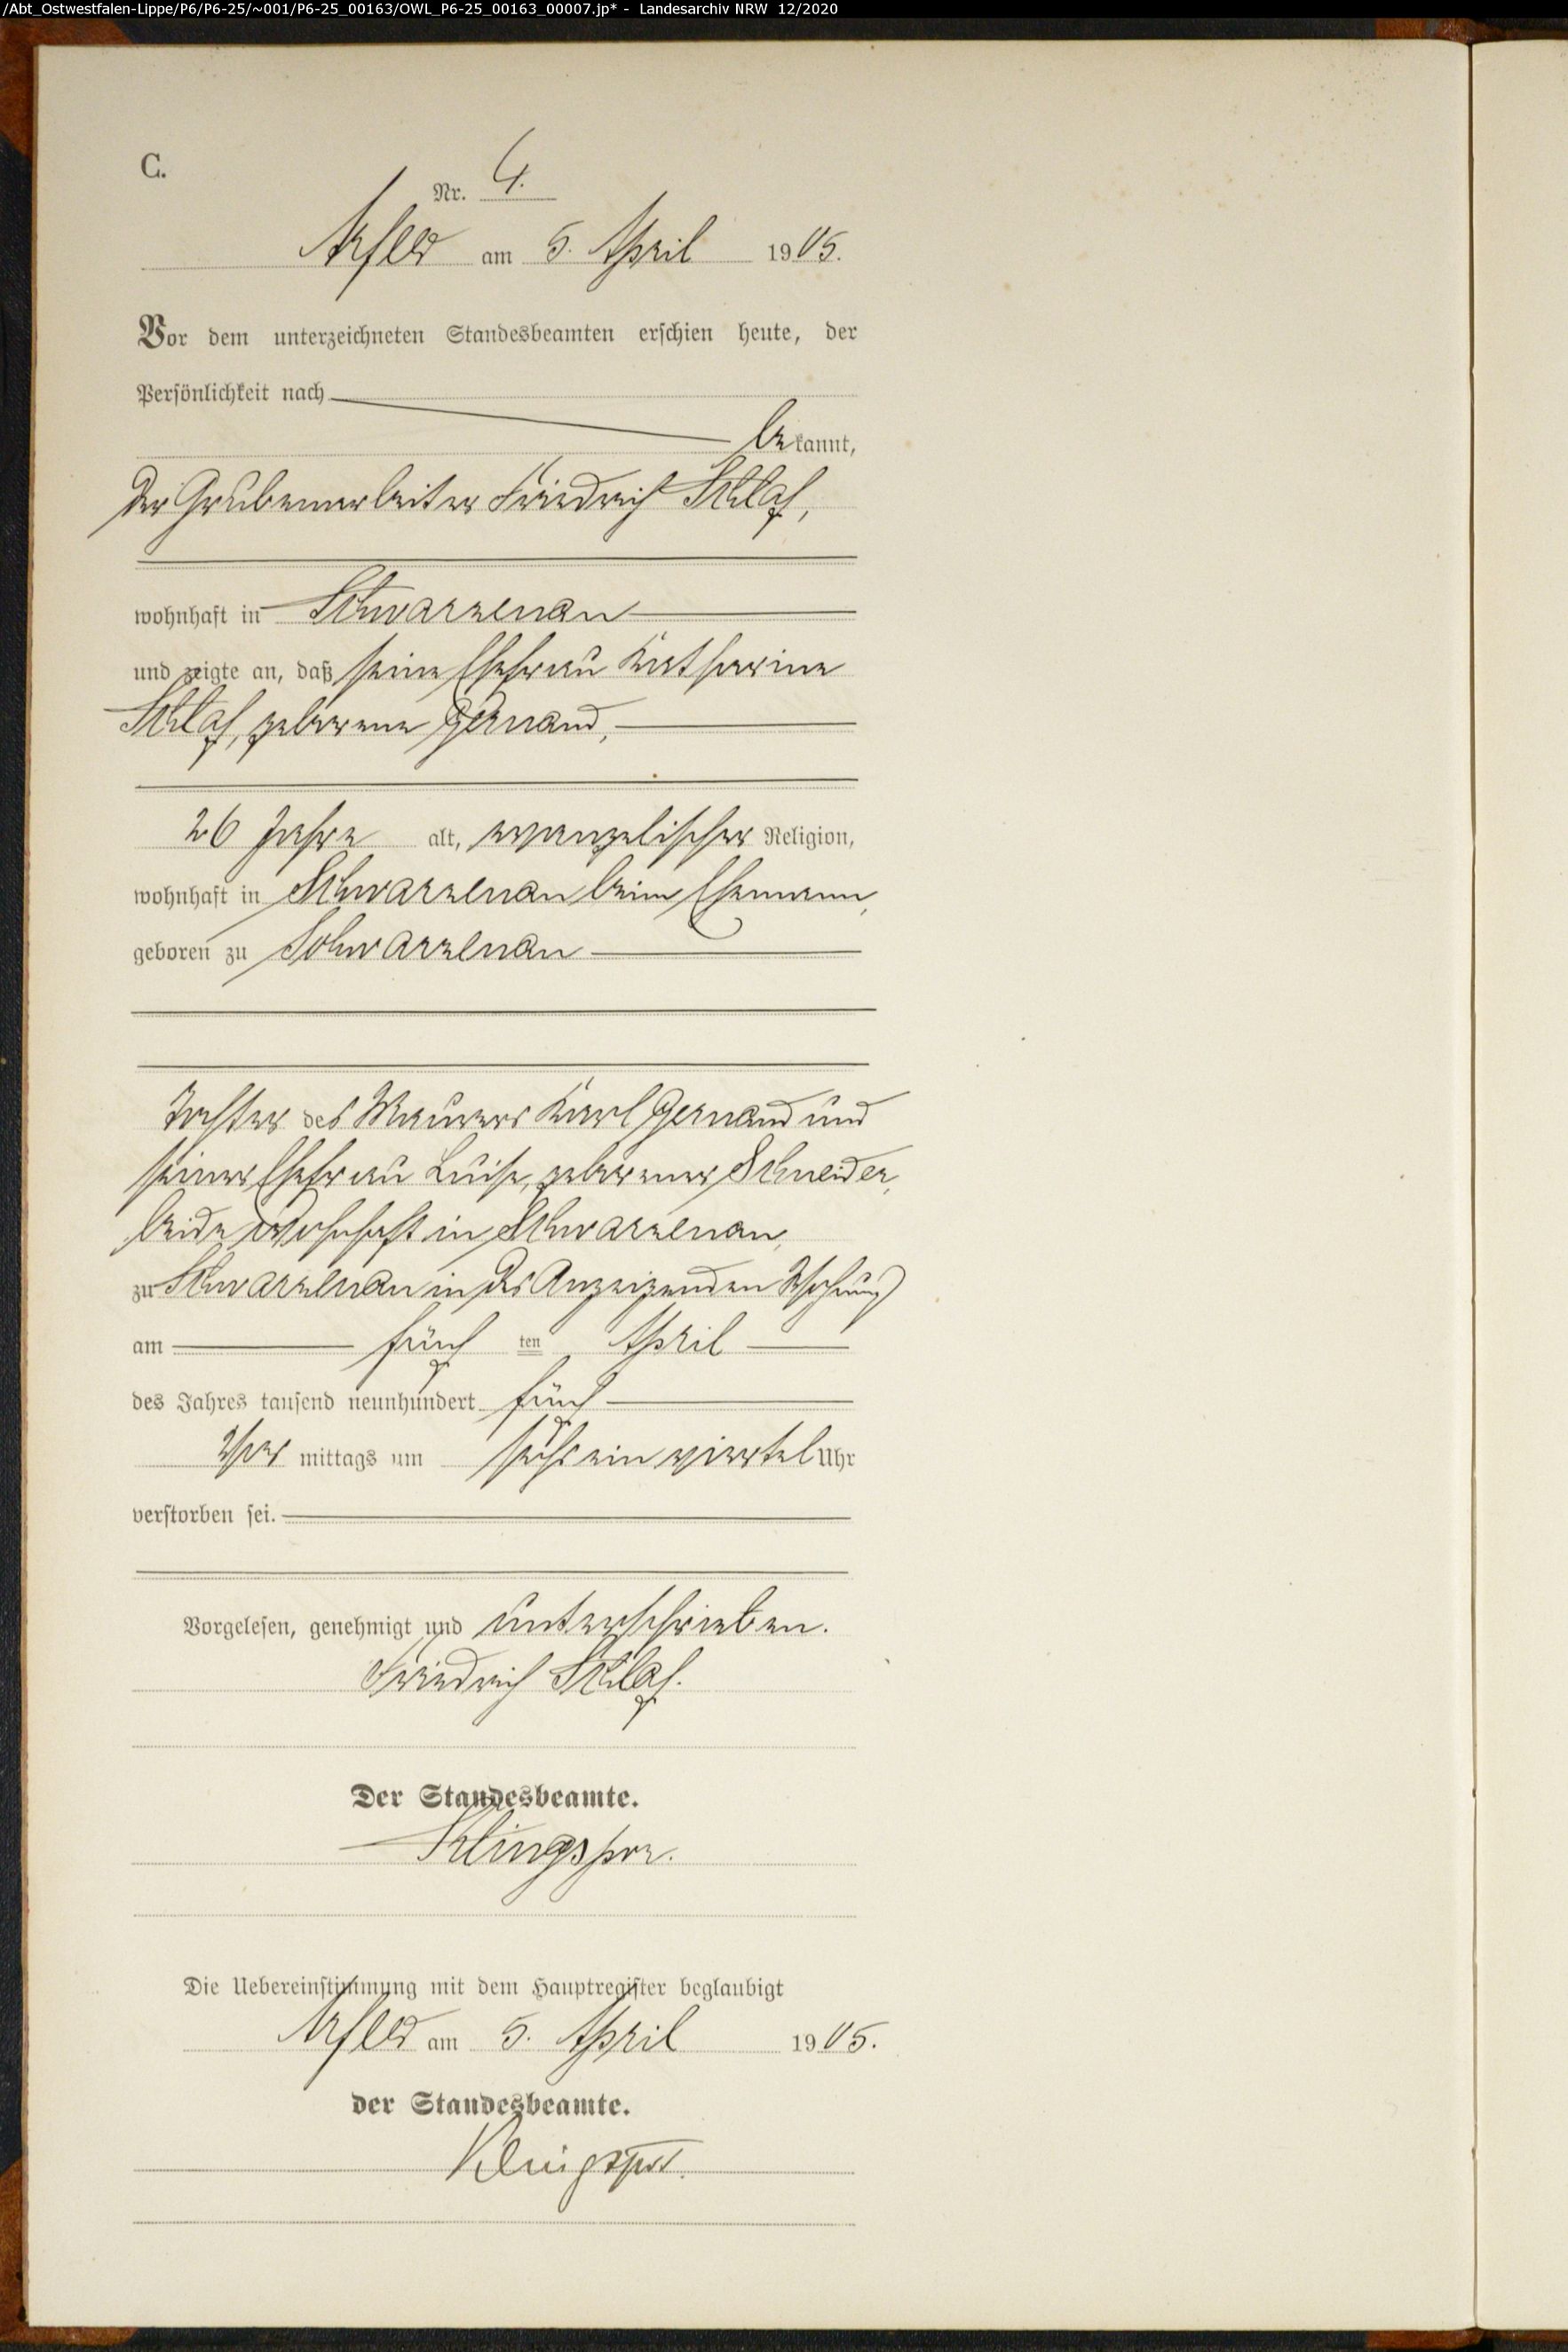 /Abt_Ostwestfalen-Lippe/P6/P6-25/~001/P6-25_00163/OWL_P6-25_00163_00007.jp* - Landesarchiv NRW 12/2020
C.
Nr. 4.
Arfeld am 5. April 1905.
Vor dem unterzeichneten Standesbeamten erschien heute, der
Persönlichkeit nach
bekannt,
der Grubenarbeiter Friedrich Schlaf,
wohnhaft in Schwarzenau
und zeigte an, daß seine Ehefrau Katharine
Schlaf, geborene Gernand,
26 Jahre alt, evangelischer Religion,
wohnhaft in Schwarzenau beim Ehemann,
geboren zu Schwarzenau
Tochter des Maurers Karl Gernand und
seiner Ehefrau Luise, geborener Schneider,
beide wohnhaft in Schwarzenau,
zu Schwarzenau in des Anzeigenden Wohnung
am fünf ten April
des Jahres tausend neunhundert fünf
Vor mittags um sechs ein viertel Uhr
verstorben sei.
Vorgelesen, genehmigt und unterschrieben.
Friedrich Schlaf.
Der Standesbeamte.
Klingspor.
Die Uebereinstimmung mit dem Hauptregister beglaubigt
Arfeld am 5. April 1905.
der Standesbeamte.
Klingspor.